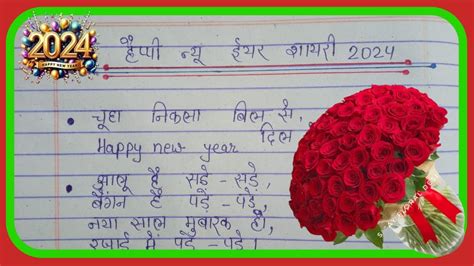 2024
HAPPY NEW YEAR
हैप्पी न्यू ईयर शायरी 2024
चूहा निकला बिल से,
Happy new year दिल
आलू है सड़े-सड़े,
बैंगन है पड़े-पड़े,
नया साल मुबारक हो,
रजाई में पड़े-पड़े।